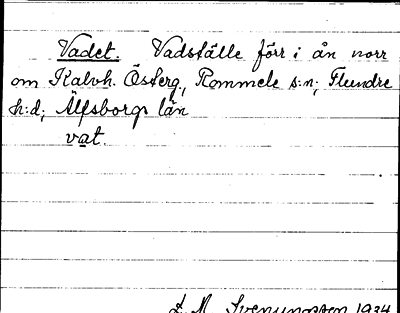 Vadet. Vadställe förr i ån norr
om Kalvh. Österg., Rommele s:n; Flundre
h:d; Älfsborgs län
vat.
S. M. Svenungsson 1934